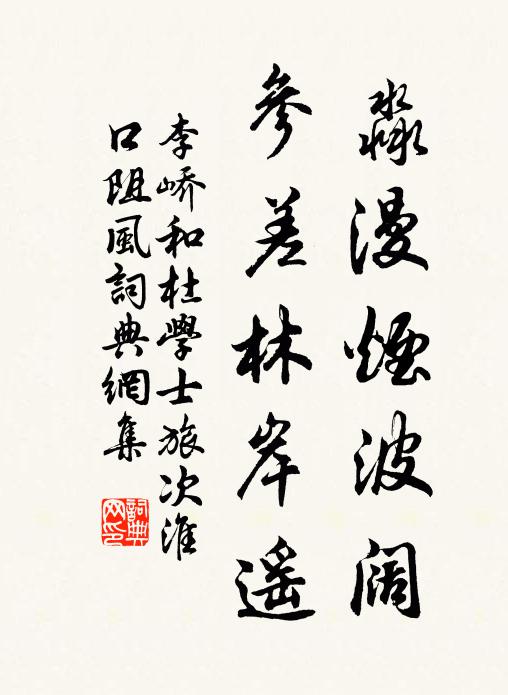 淼漫煙波闊
參差林岸遥
李嶠和杜學士旅次淮
口阻風詞典網集
詞典
网印